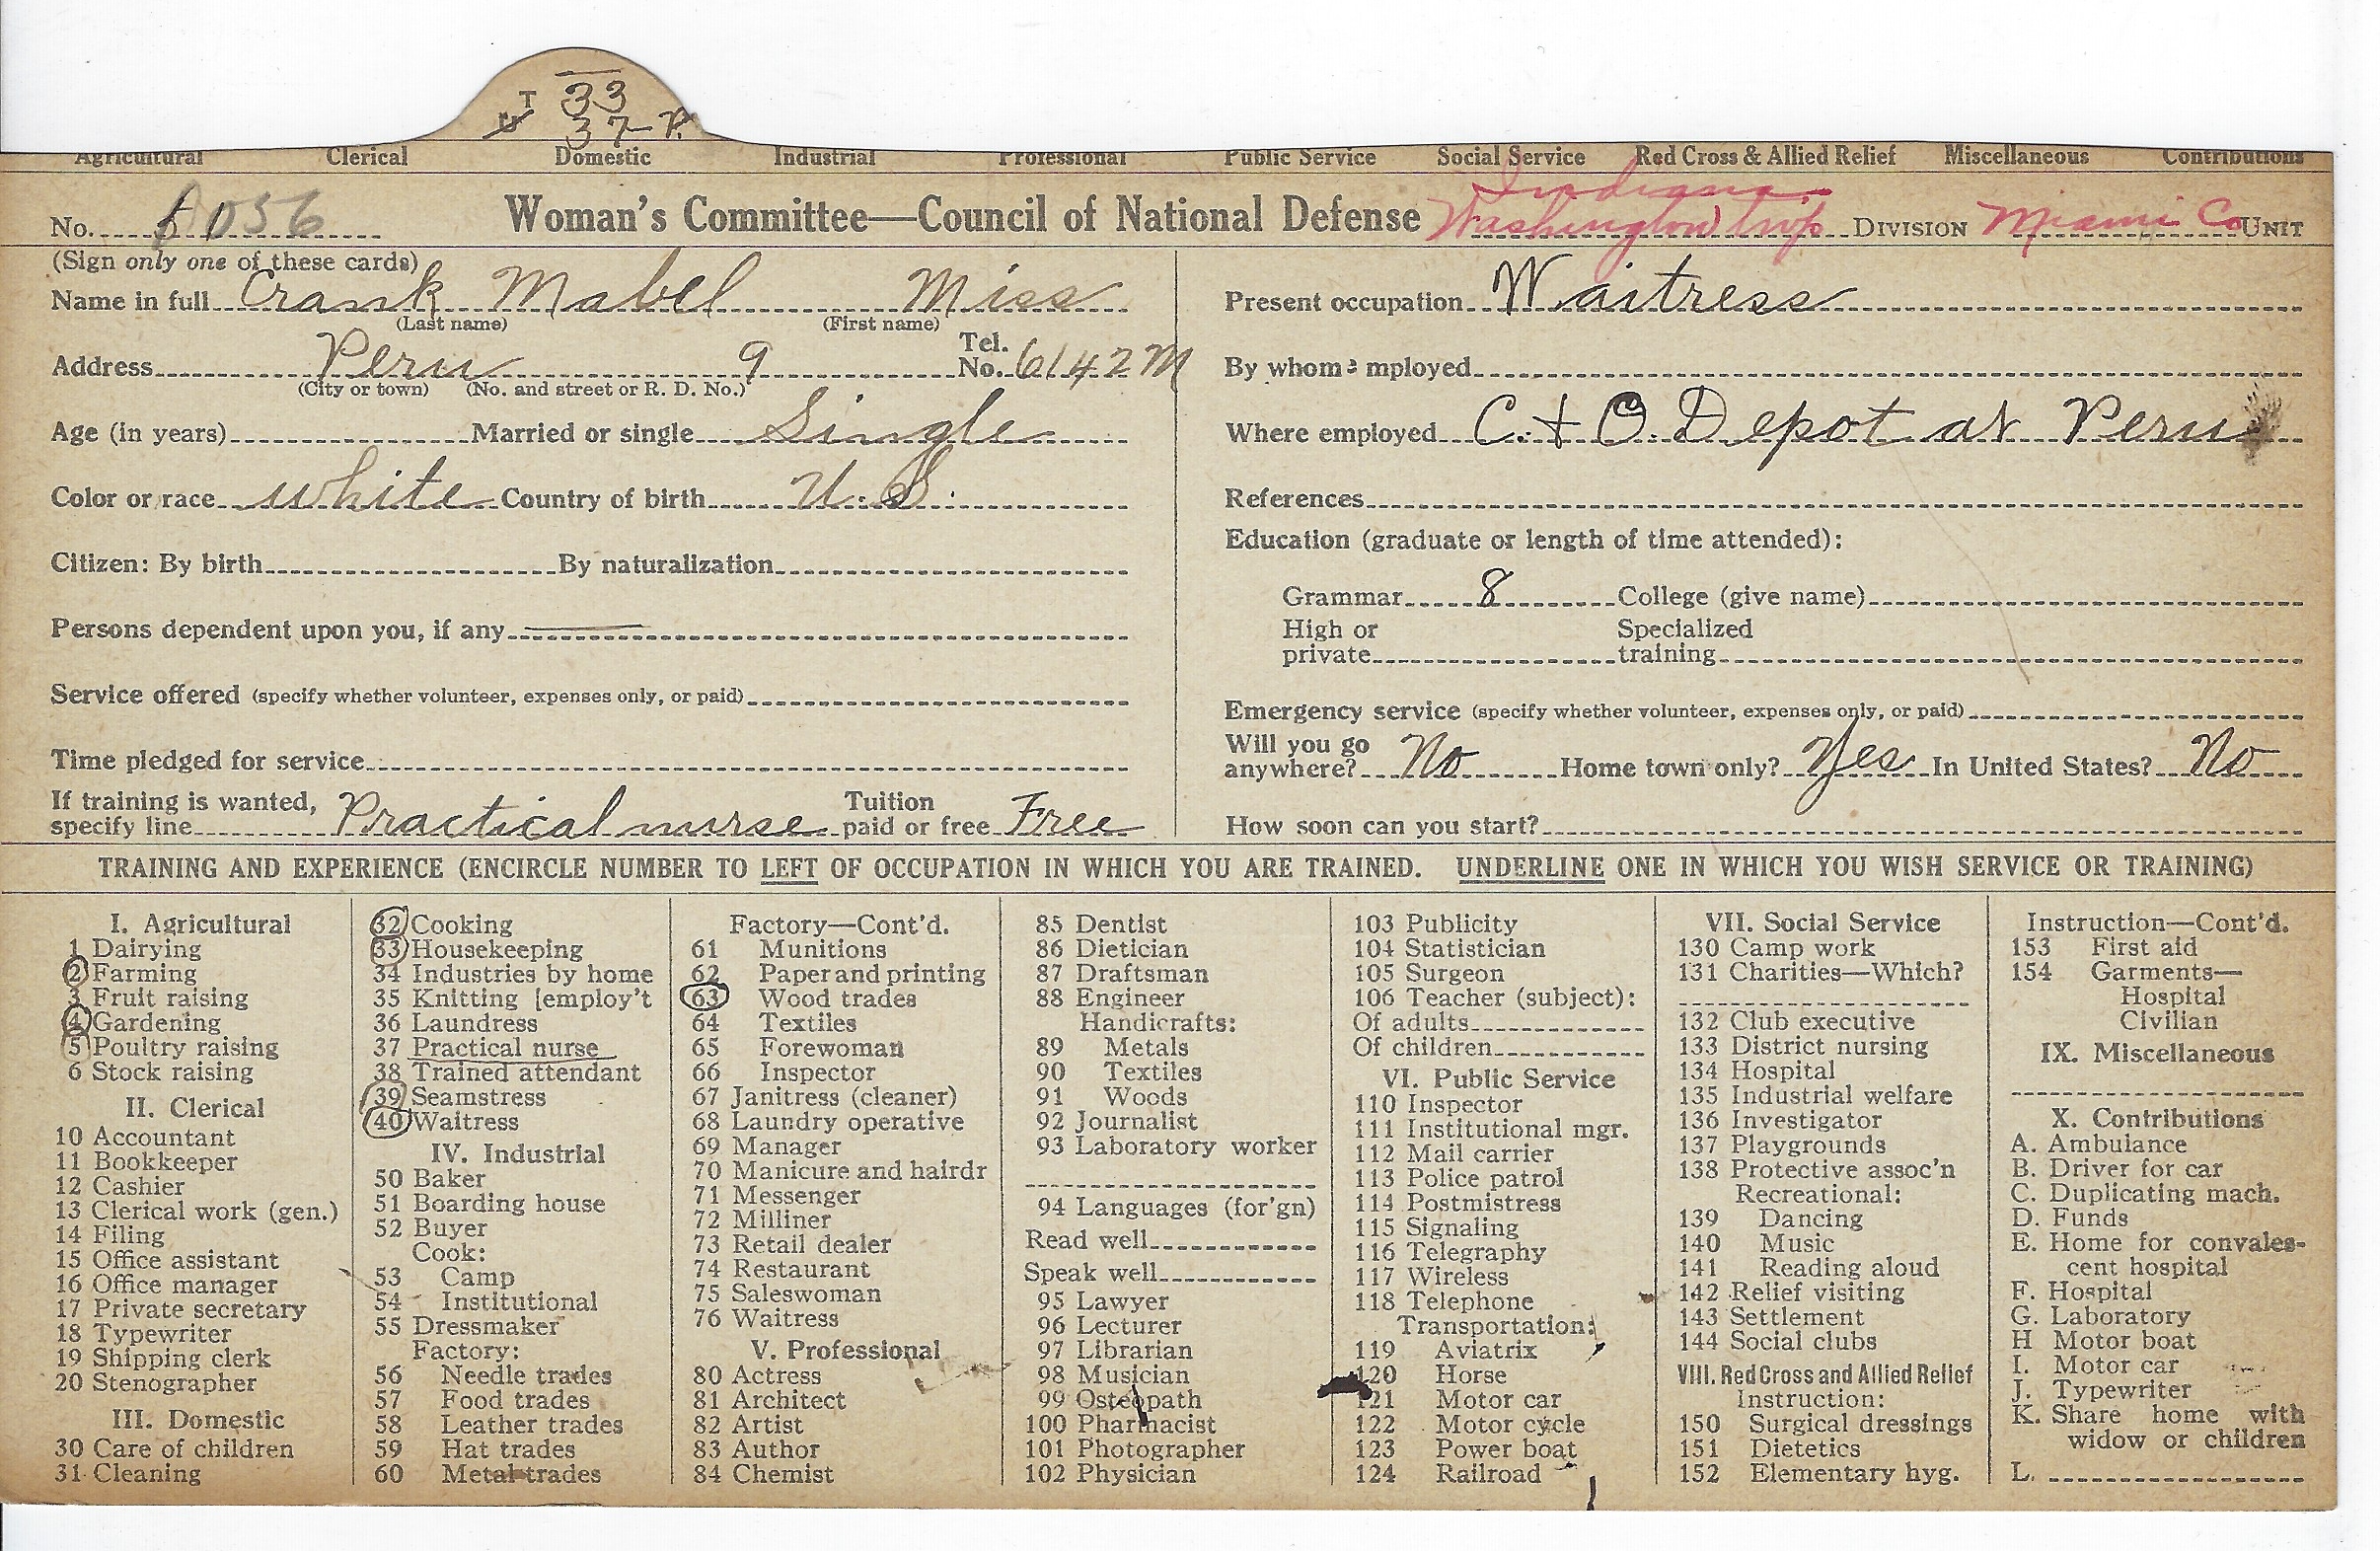 T 33
37 P.
Agricultural Clerical Domestic Industrial Professional Public Service Social Service Red Cross & Allied Relief Miscellaneous Contributions
No. 1056 Woman's Committee—Council of National Defense Indiana Washington twp DIVISION Miami Co UNIT
(Sign only one of these cards)
Name in full Crank Mabel Miss
(Last name) (First name)
Address Peru 9 Tel. No. 6142 M
(City or town) (No. and street or R. D. No.)
Age (in years) Married or single Single
Color or race white Country of birth U.S.
Citizen: By birth By naturalization
Persons dependent upon you, if any
Service offered (specify whether volunteer, expenses only, or paid)
Time pledged for service
If training is wanted, specify line Practical nurse Tuition paid or free Free
Present occupation Waitress
By whom employed
Where employed C. & O. Depot at Peru
References
Education (graduate or length of time attended):
Grammar 8 College (give name)
High or private Specialized training
Emergency service (specify whether volunteer, expenses only, or paid)
Will you go anywhere? No Home town only? Yes In United States? No
How soon can you start?
TRAINING AND EXPERIENCE (ENCIRCLE NUMBER TO LEFT OF OCCUPATION IN WHICH YOU ARE TRAINED. UNDERLINE ONE IN WHICH YOU WISH SERVICE OR TRAINING)
I. Agricultural
1 Dairying
2 Farming
3 Fruit raising
4 Gardening
5 Poultry raising
6 Stock raising
II. Clerical
10 Accountant
11 Bookkeeper
12 Cashier
13 Clerical work (gen.)
14 Filing
15 Office assistant
16 Office manager
17 Private secretary
18 Typewriter
19 Shipping clerk
20 Stenographer
III. Domestic
30 Care of children
31 Cleaning
32 Cooking
33 Housekeeping
34 Industries by home
35 Knitting [employ't
36 Laundress
37 Practical nurse
38 Trained attendant
39 Seamstress
40 Waitress
IV. Industrial
50 Baker
51 Boarding house
52 Buyer
Cook:
53 Camp
54 Institutional
55 Dressmaker
Factory:
56 Needle trades
57 Food trades
58 Leather trades
59 Hat trades
60 Metal trades
Factory—Cont'd.
61 Munitions
62 Paper and printing
63 Wood trades
64 Textiles
65 Forewoman
66 Inspector
67 Janitress (cleaner)
68 Laundry operative
69 Manager
70 Manicure and hairdr
71 Messenger
72 Milliner
73 Retail dealer
74 Restaurant
75 Saleswoman
76 Waitress
V. Professional
80 Actress
81 Architect
82 Artist
83 Author
84 Chemist
85 Dentist
86 Dietician
87 Draftsman
88 Engineer
Handicrafts:
89 Metals
90 Textiles
91 Woods
92 Journalist
93 Laboratory worker
94 Languages (for'gn)
Read well
Speak well
95 Lawyer
96 Lecturer
97 Librarian
98 Musician
99 Osteopath
100 Pharmacist
101 Photographer
102 Physician
103 Publicity
104 Statistician
105 Surgeon
106 Teacher (subject):
Of adults
Of children
VI. Public Service
110 Inspector
111 Institutional mgr.
112 Mail carrier
113 Police patrol
114 Postmistress
115 Signaling
116 Telegraphy
117 Wireless
118 Telephone
Transportation:
119 Aviatrix
120 Horse
121 Motor car
122 Motor cycle
123 Power boat
124 Railroad
VII. Social Service
130 Camp work
131 Charities—Which?
132 Club executive
133 District nursing
134 Hospital
135 Industrial welfare
136 Investigator
137 Playgrounds
138 Protective assoc'n
Recreational:
139 Dancing
140 Music
141 Reading aloud
142 Relief visiting
143 Settlement
144 Social clubs
VIII. Red Cross and Allied Relief
Instruction:
150 Surgical dressings
151 Dietetics
152 Elementary hyg.
Instruction—Cont'd.
153 First aid
154 Garments—
Hospital
Civilian
IX. Miscellaneous
X. Contributions
A. Ambulance
B. Driver for car
C. Duplicating mach.
D. Funds
E. Home for convales-
cent hospital
F. Hospital
G. Laboratory
H Motor boat
I. Motor car
J. Typewriter
K. Share home with
widow or children
L.